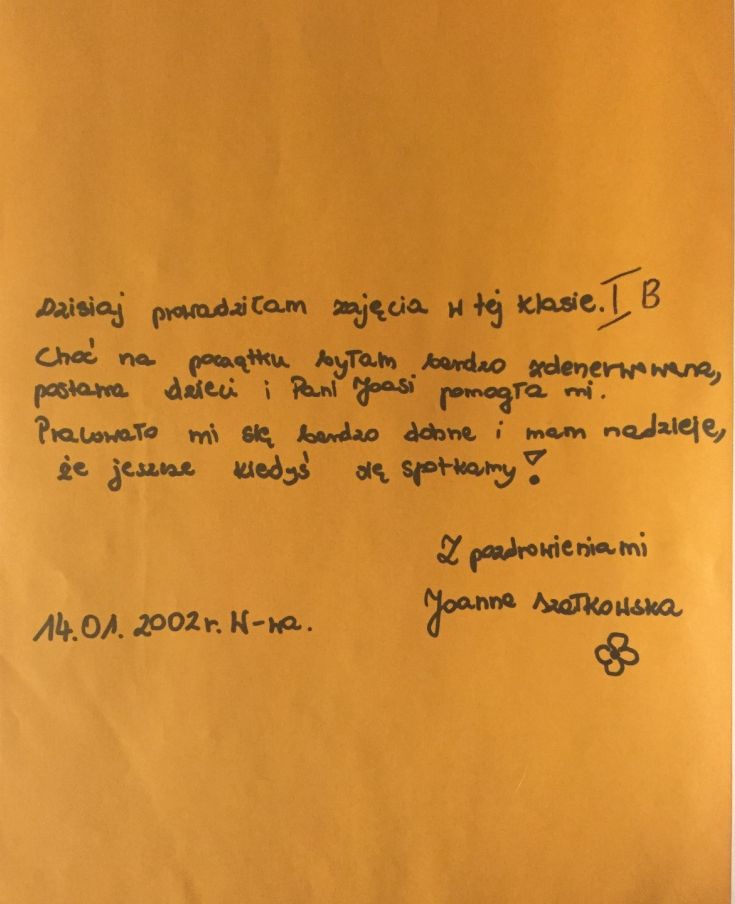 Dzisiaj prowadziłam zajęcia w tej klasie. I B
Choć na początku byłam bardzo zdenerwowana,
postawa dzieci i Pani Joasi pomogła mi.
Pracowało mi się bardzo dobrze i mam nadzieję,
że jeszcze kiedyś się spotkamy!
Z pozdrowieniami
Joanna Szatkowska
14.01.2002r. W-wa.